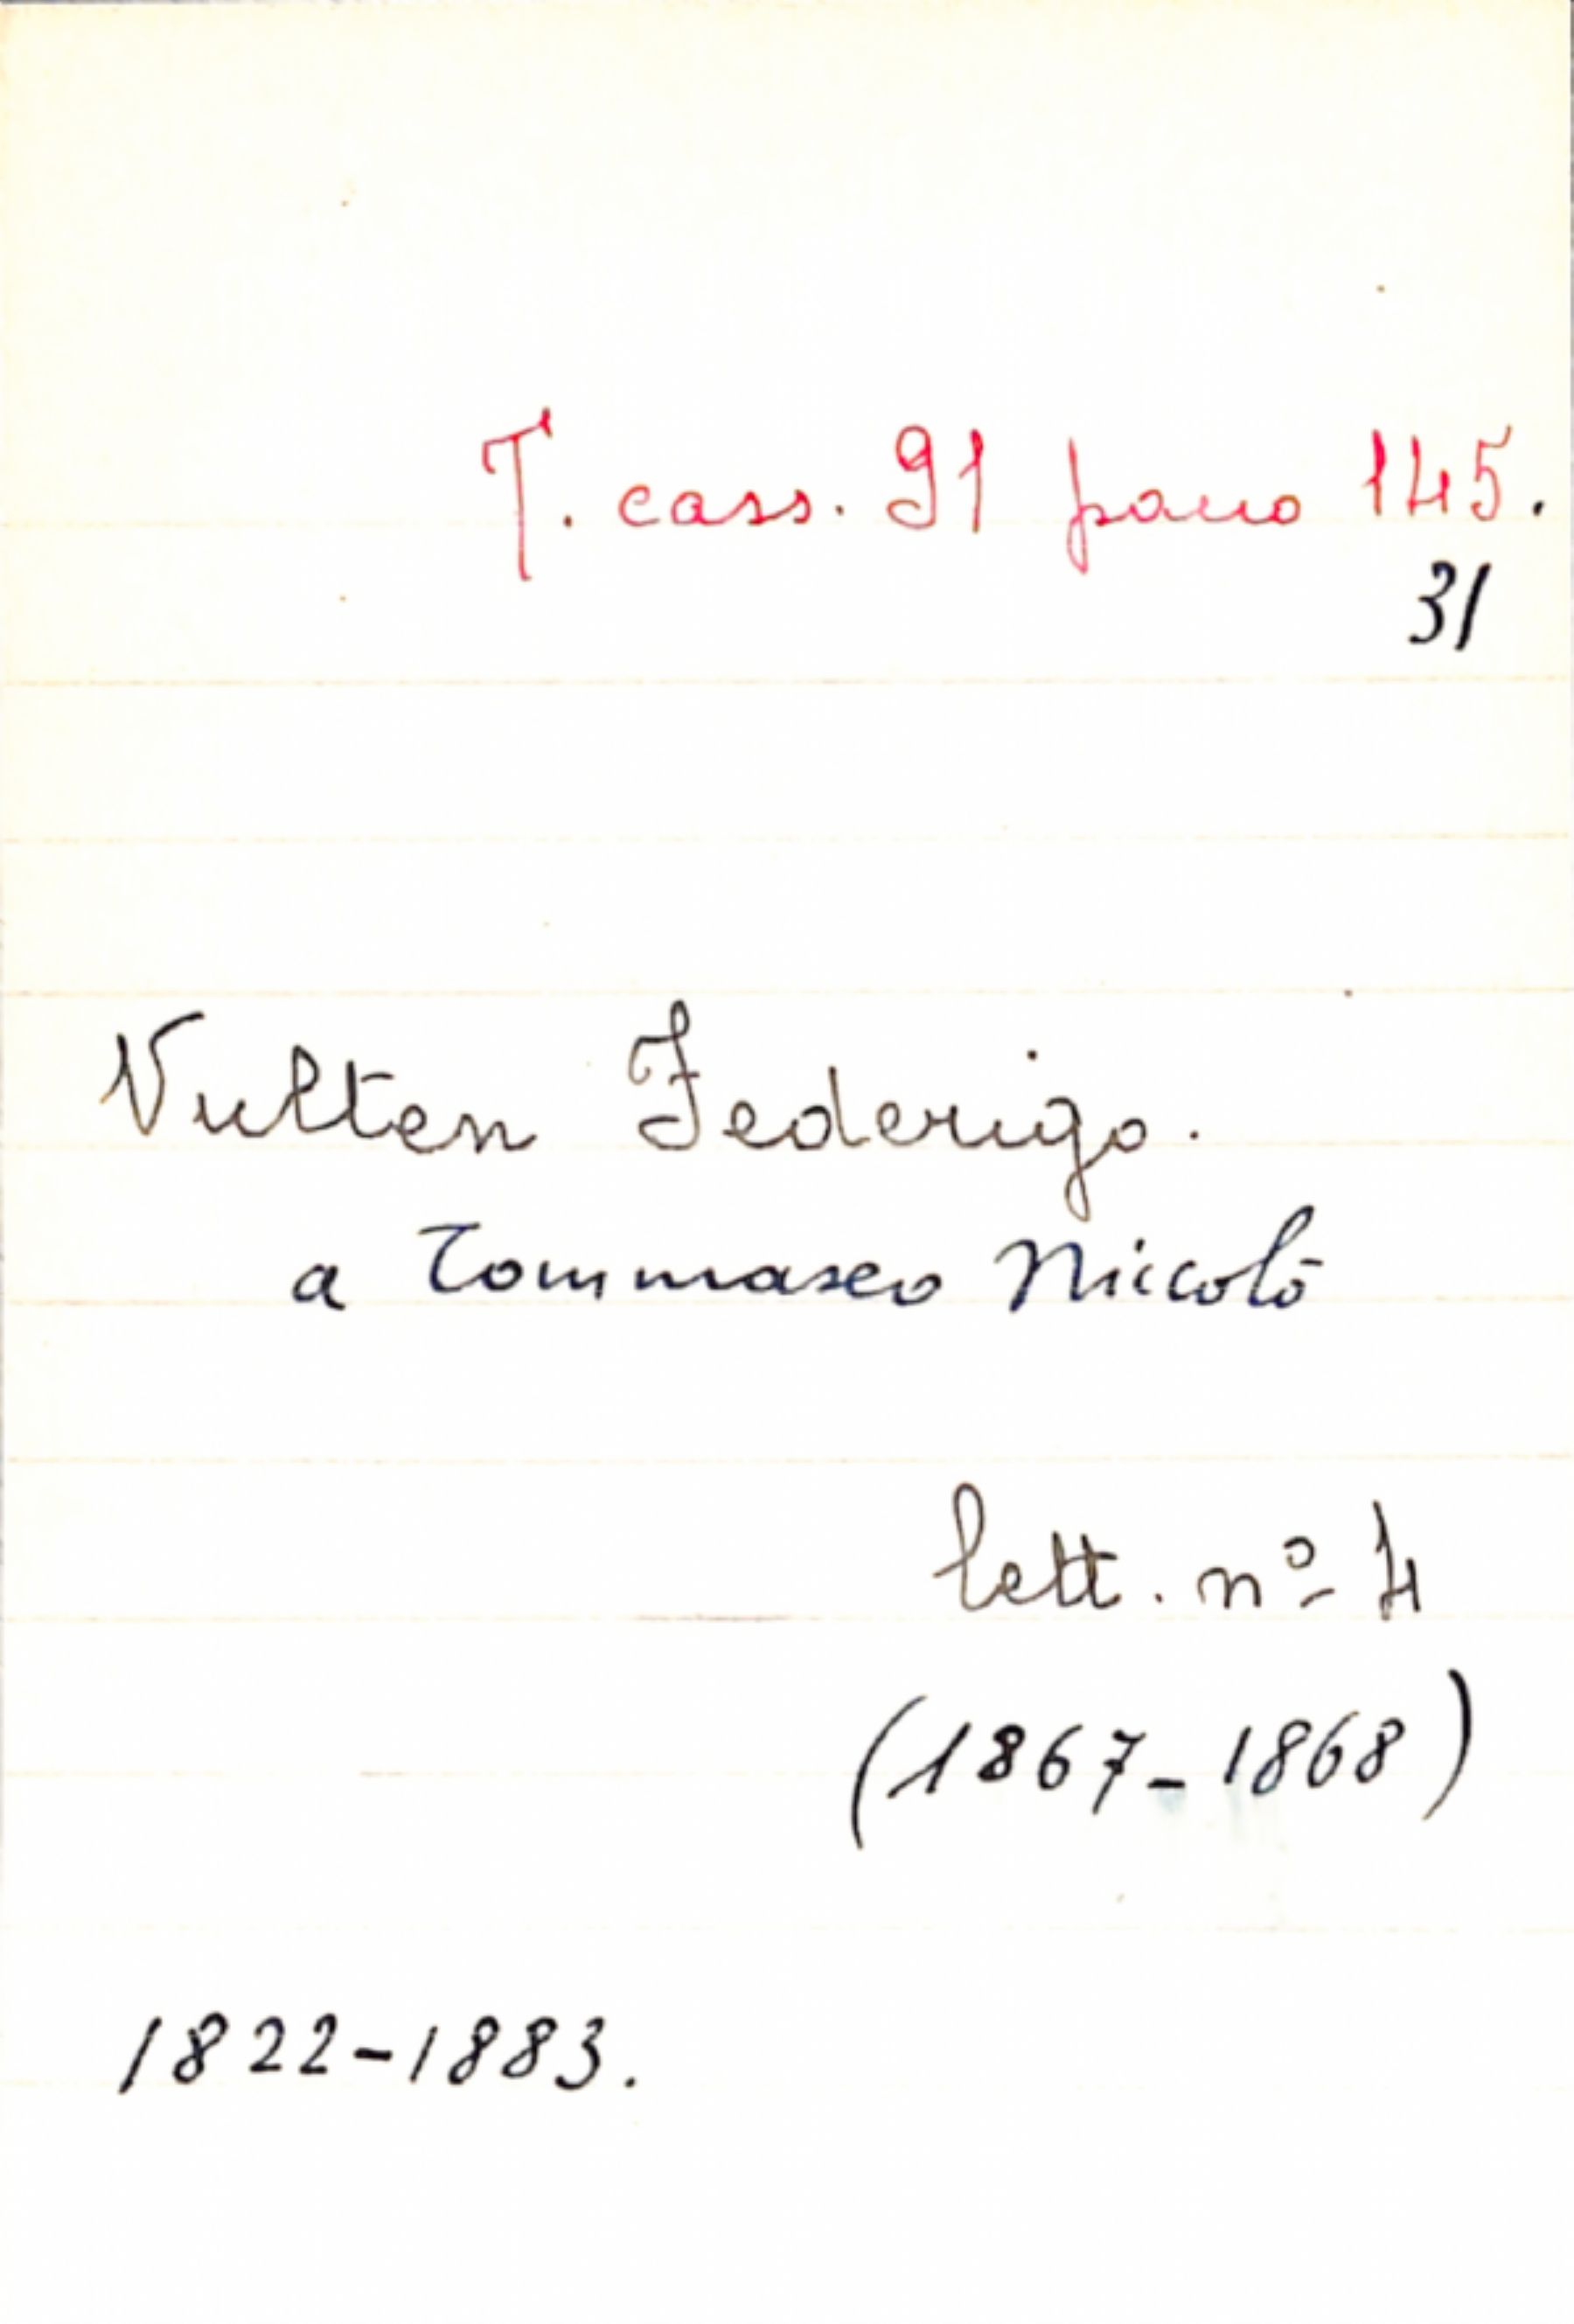 T. cass. 91 panno 145.
31
Vulten Federigo.
a Tommaseo Niccolò
lett. nº 4
(1867-1868)
1822-1883.